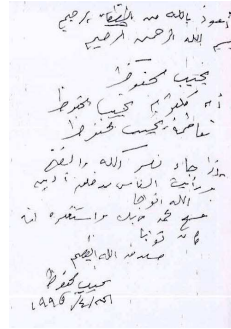 أعوذ بالله من الشيطان الرجيم
بسم الله الرحمن الرحيم
نجيب محفوظ
أم كلثوم نجيب محفوظ
فاطمة نجيب محفوظ
إذا جاء نصر الله والفتح
ورأيت الناس يدخلون في دين
الله أفواجا
فسبح بحمد ربك واستغفره إنه
كان توابا
صدق الله العظيم
نجيب محفوظ